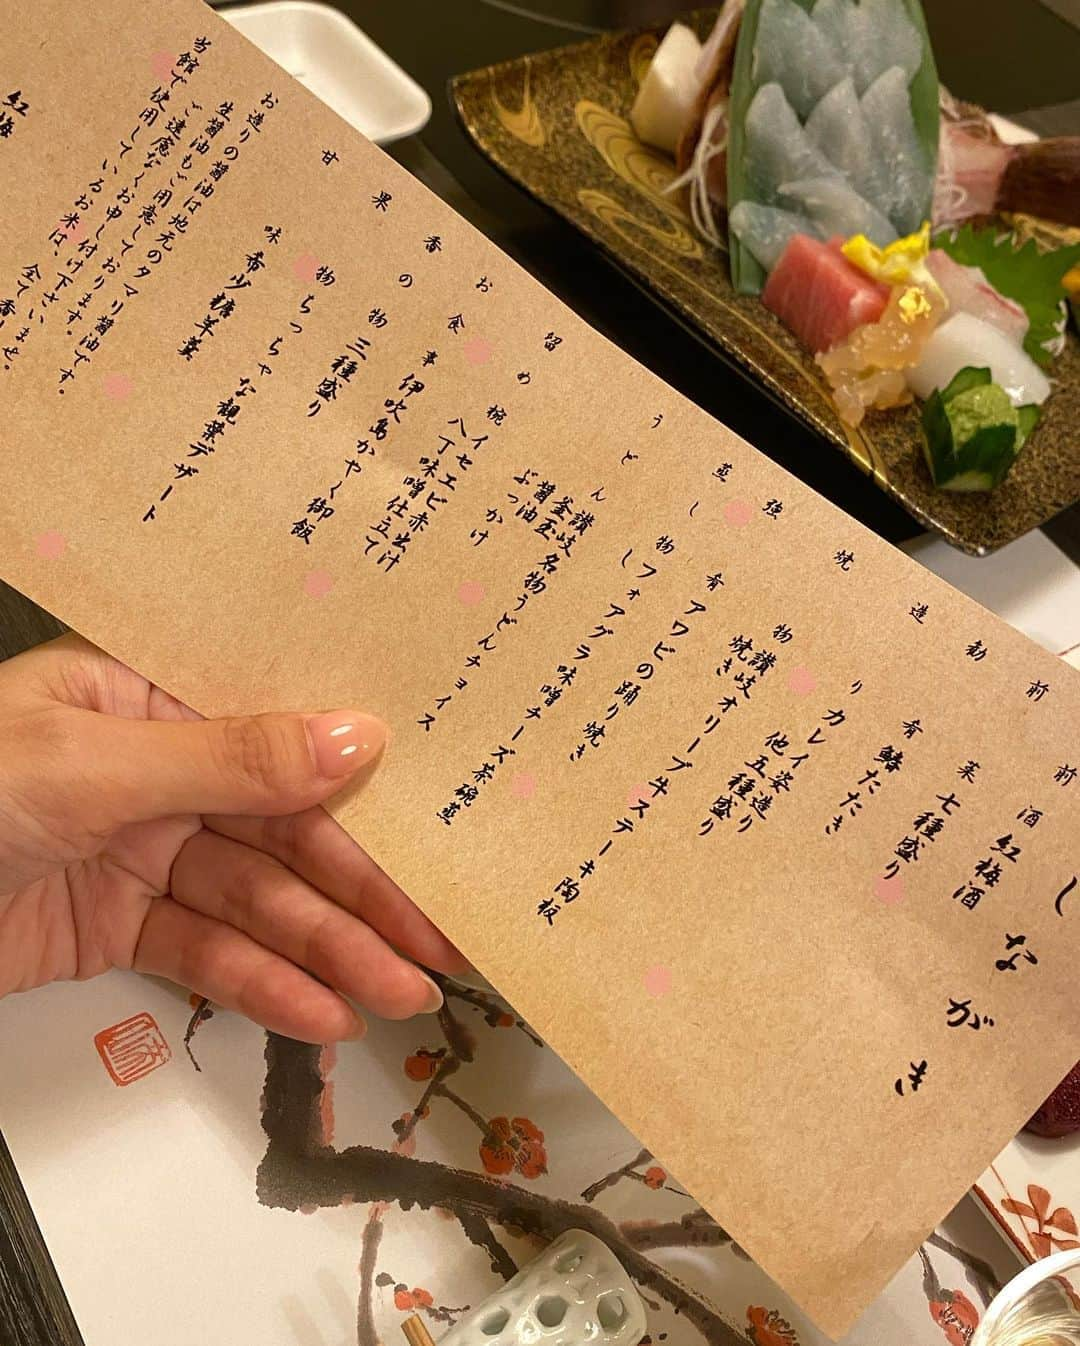 しながき
前酒 紅梅酒
前菜 七種盛り
勧肴 鰆たたき
造り カレイ姿造り
他五種盛り
焼物 讃岐オリーブ牛ステーキ陶板焼き
強肴 アワビの踊り焼き
蒸し物 フォアグラ味噌チーズ茶碗蒸し
うどん 讃岐名物うどんチョイス
釜玉
醤油
ぶっかけ
留め椀 イセエビ赤出汁
八丁味噌仕立て
お食事 伊吹島かやく御飯
香の物 三種盛り
果物 ちっちゃな観葉デザート
甘味 希少糖羊羹
お造りの醤油は地元のタマリ醤油です。
生醤油もご用意しております。
ご遠慮なくお申し付け下さいませ。
当館で使用しているお米は、全て香
紅梅